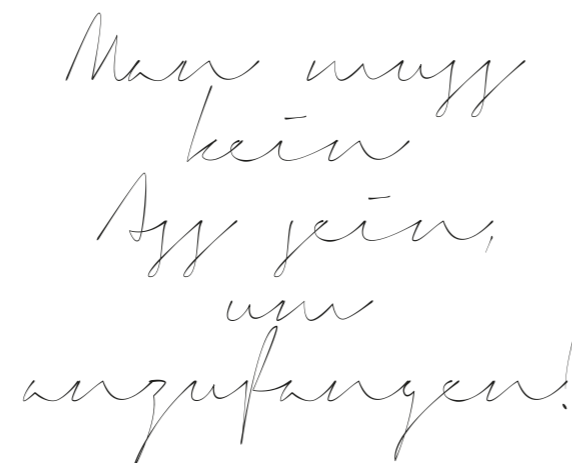 Man muss
kein
Ass sein,
um
anzufangen!